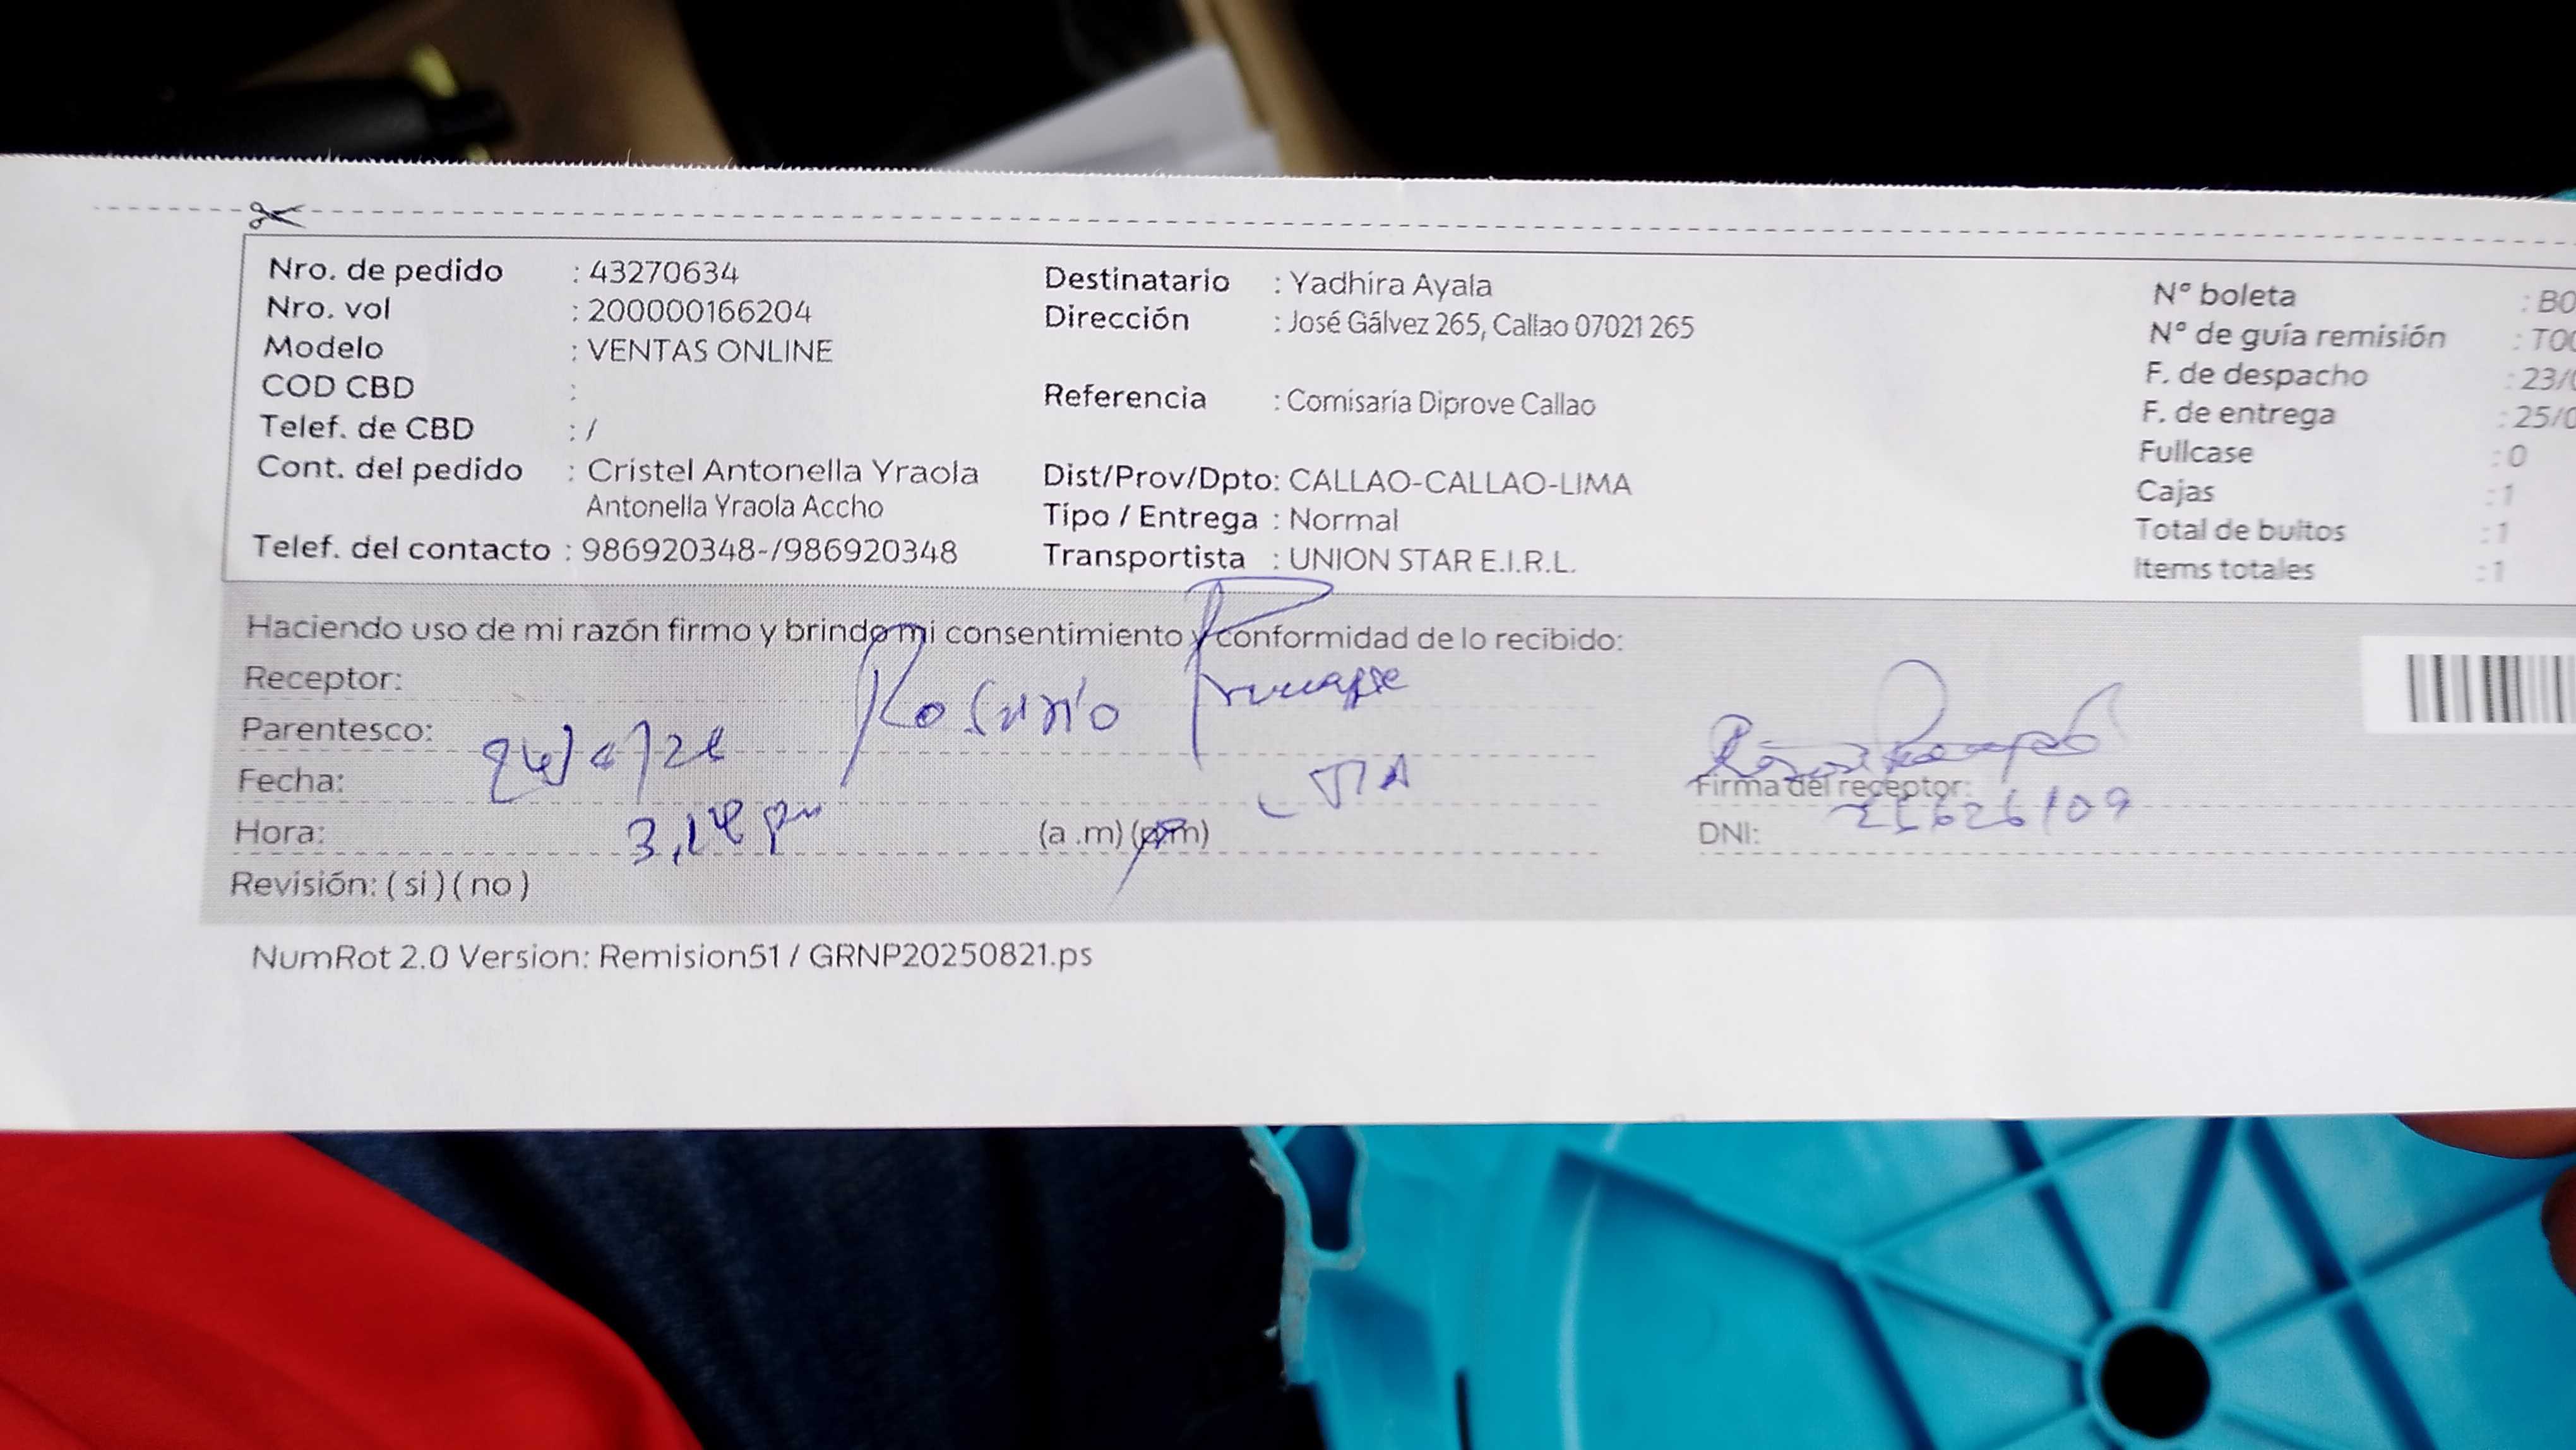 Nro. de pedido : 43270634
Nro. vol : 200000166204
Modelo : VENTAS ONLINE
COD CBD :
Telef. de CBD : /
Cont. del pedido : Cristel Antonella Yraola
Antonella Yraola Accho
Telef. del contacto : 986920348-/986920348
Destinatario : Yadhira Ayala
Dirección : José Gálvez 265, Callao 07021 265
Referencia : Comisaría Diprove Callao
Dist/Prov/Dpto: CALLAO-CALLAO-LIMA
Tipo / Entrega : Normal
Transportista : UNION STAR E.I.R.L.
N° boleta : B0
N° de guía remisión : T00
F. de despacho : 23/0
F. de entrega : 25/0
Fullcase : 0
Cajas : 1
Total de bultos : 1
Items totales : 1
Haciendo uso de mi razón firmo y brindo mi consentimiento y conformidad de lo recibido:
Receptor: Rosario
Parentesco: TIA
Fecha:
Hora: (a .m) (p.m)
Revisión: ( si ) ( no )
Firma del receptor:
DNI:
NumRot 2.0 Version: Remision51 / GRNP20250821.ps